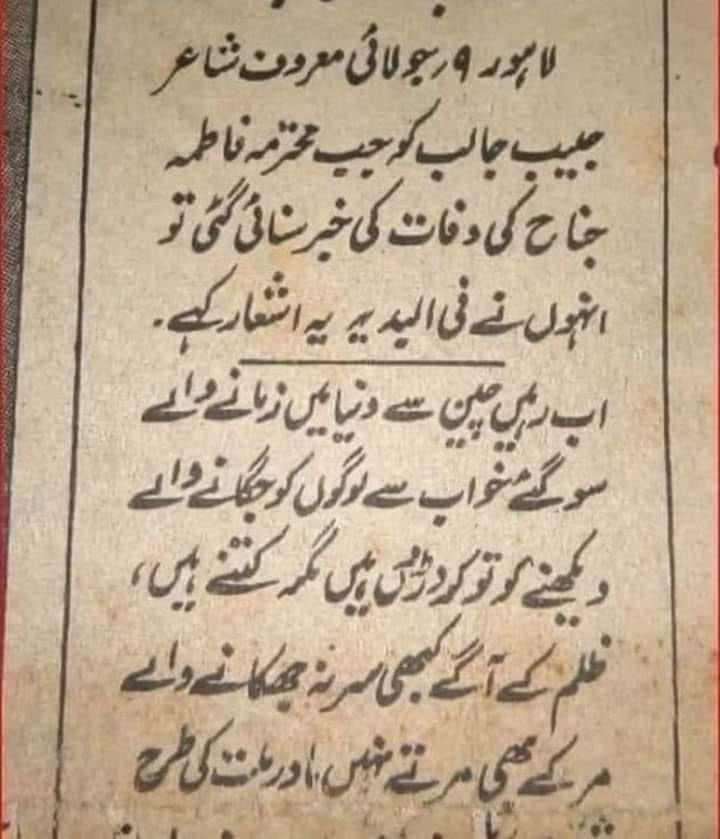 لاہور ۹ رجولائی معروف شاعر
حبیب جالب کو جب محترمہ فاطمہ
جناح کی وفات کی خبر سنائی گئی تو
انہوں نے فی البدیہہ یہ اشعار کہے۔
اب رہیں چین سے دنیا میں زمانے والے
سو گئے خواب سے لوگوں کو جگانے والے
دیکھنے کو تو کروڑوں ہیں مگر کتنے ہیں،
ظلم کے آگے کبھی سر نہ جھکانے والے
مر کے بھی مرتے نہیں مادر ملت کی طرح